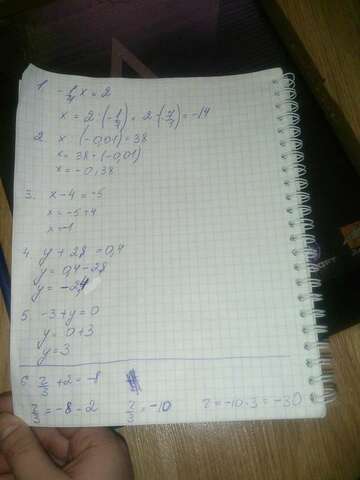 1 -1/7 x = 2
x = 2 : (-1/7) = 2 · (7/1) = -14
2. x : (-0,01) = 38
x = 38 · (-0,01)
x = -0,38
3. x - 4 = -5
x = -5 + 4
x = -1
4. y + 28 = 0,4
y = 0,4 - 28
y = -2,4
5. -3 + y = 0
y = 0 + 3
y = 3
6. z/3 + 2 = -8
z/3 = -8 - 2 z/3 = -10 z = -10 · 3 = -30